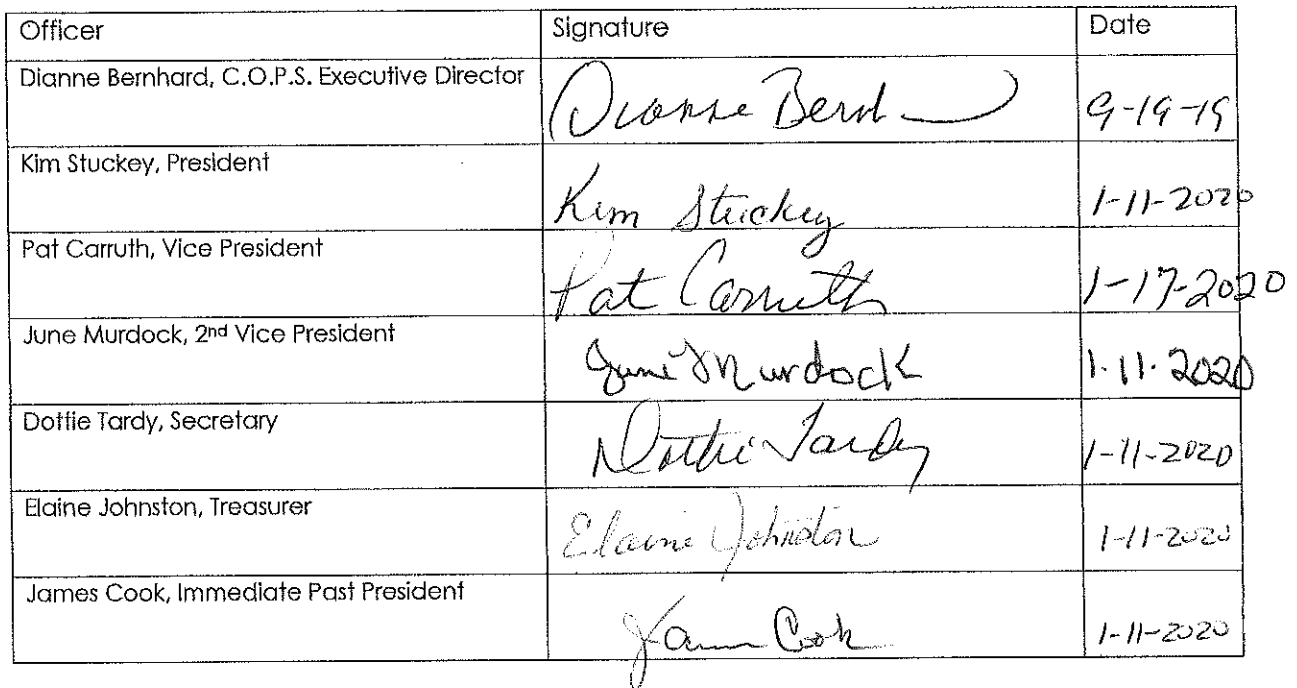 Officer Signature Date
Dianne Bernhard, C.O.P.S. Executive Director Dianne Bernh 9-19-19
Kim Stuckey, President Kim Stuckey 1-11-2020
Pat Carruth, Vice President Pat Carruth 1-17-2020
June Murdock, 2nd Vice President June Murdock 1.11.2020
Dottie Tardy, Secretary Dottie Tardy 1-11-2020
Elaine Johnston, Treasurer Elaine Johnston 1-11-2020
James Cook, Immediate Past President James Cook 1-11-2020